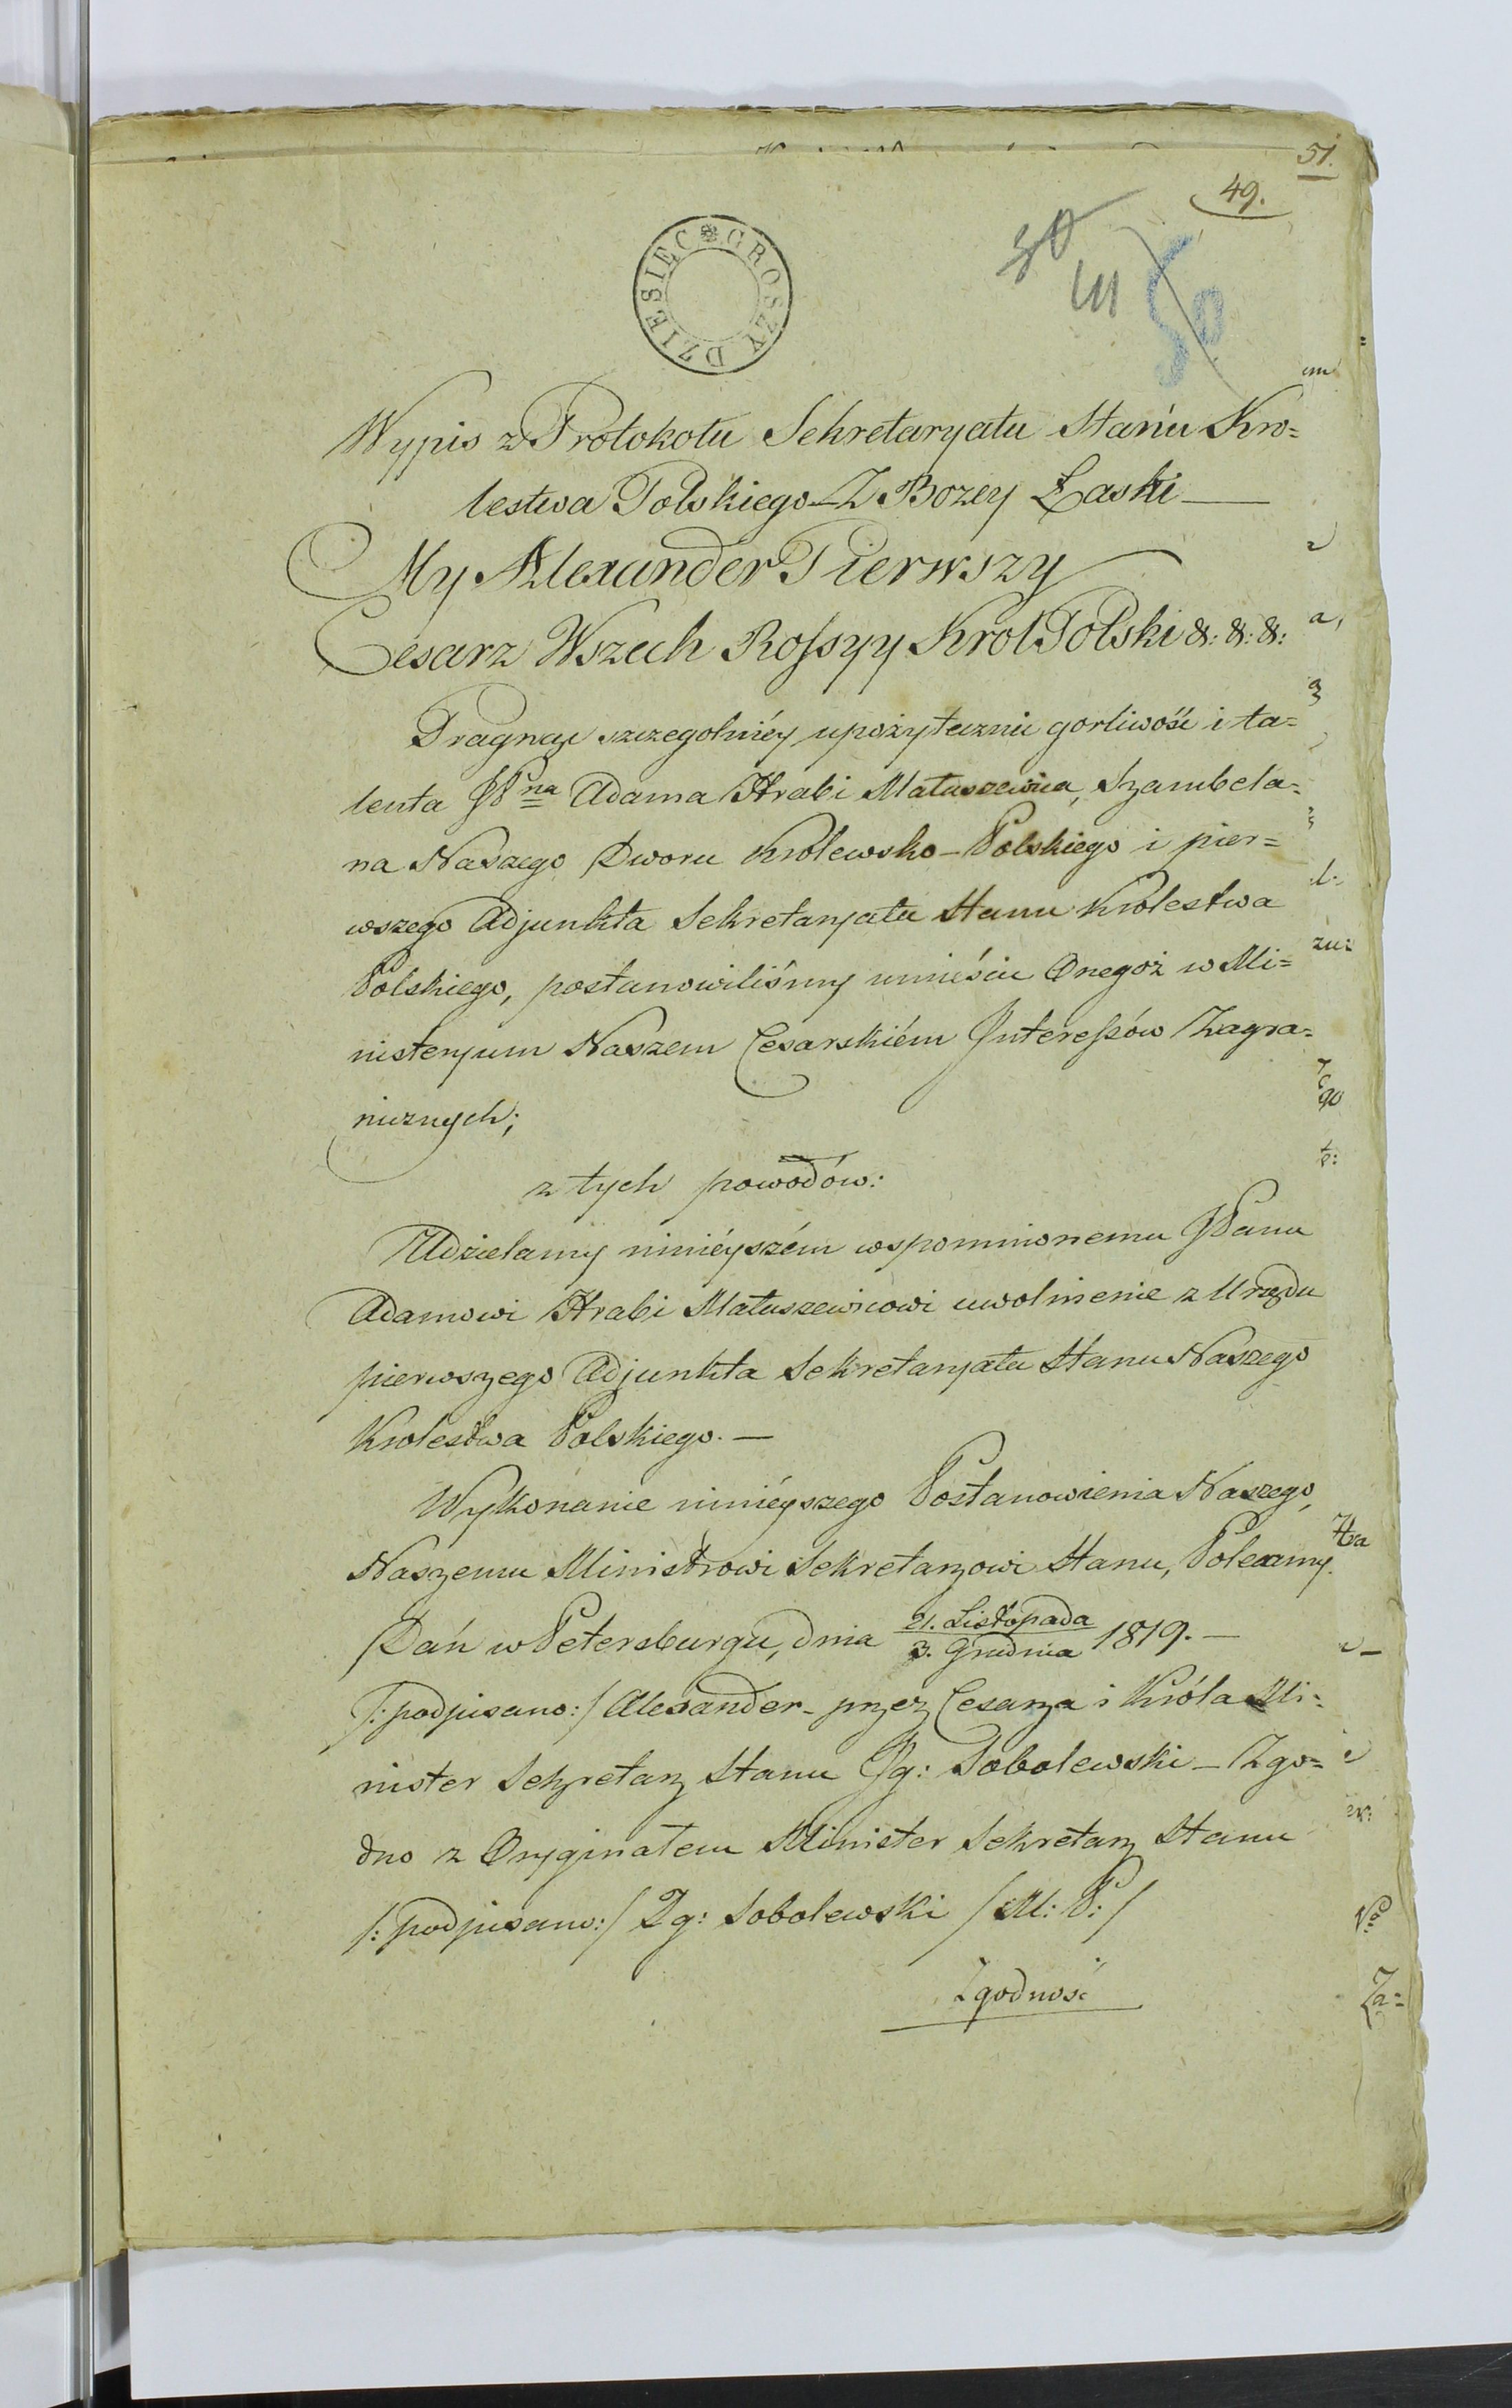 51.
49.
50
50
DZIESIĘC GROSZY
Wypis z Protokołu Sekretaryatu Stanu Kro=
lestwa Polskiego – Z Bozey Łaski —
My Alexander Pierwszy
Cesarz Wszech Rossyy Krol Polski &: &: &:
Pragnąc szczegolniéy upożytecznić gorliwość i ta=
lenta JPna Adama Hrabi Matuszewica, Szambela=
na Naszego Dworu Krolewsko – Polskiego i pier=
wszego Adjunkta Sekretaryatu Stanu Krolestwa
Polskiego, postanowiliśmy umieścić Onegoż w Mi=
nisteryum Naszem Cesarskiém Interessów Zagra=
nicznych;
z tych powodów:
Udzielamy niniéyszém wspomnionemu JPanu
Adamowi Hrabi Matuszewicowi uwolnienie z Urzędu
pierwszego Adjunkta Sekretaryatu Stanu Naszego
Krolestwa Polskiego. —
Wykonanie niniéyszego Postanowienia Naszego,
Naszemu Ministrowi Sekretarzowi Stanu, Polecamy.
Dań w Petersburgu, dnia 21. Listopada / 3. Grudnia 1819. —
/: podpisano :/ Alexander – przez Cesarza i Króla Mi=
nister Sekretarz Stanu Ig: Sobolewski – Zgo=
dno z Oryginałem Minister Sekretarz Stanu
/: podpisano :/ Ig: Sobolewski / M: P: /
Zgodność